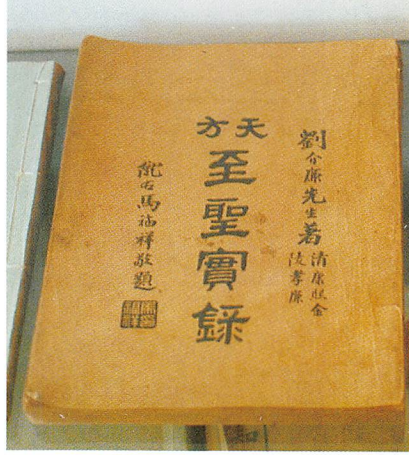 劉介廉先生著
清康熙金
陵孝廉
天方
至聖實錄
隴右馬福祥敬題
知